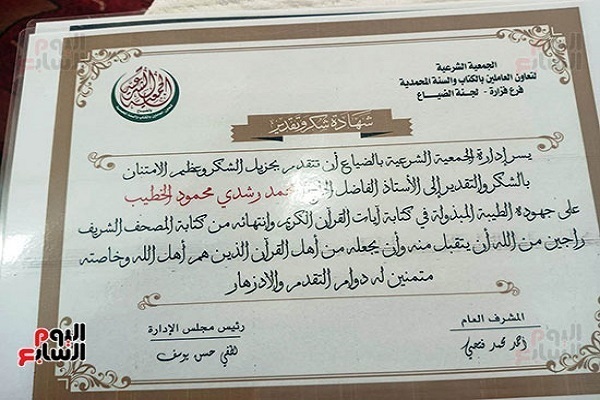 الجمعية الشرعية
لتعاون العاملين بالكتاب والسنة المحمدية
فرع فزارة - لجنة الضياع
شهادة شكر وتقدير
يسر إدارة الجمعية الشرعية بالضياع أن تتقدم بجزيل الشكر وعظيم الامتنان
بالشكر والتقدير إلى الأستاذ الفاضل محمد رشدي محمود الخطيب
على جهوده الطيبة المبذولة في كتابة آيات القرآن الكريم وانتهائه من كتابة المصحف الشريف
راجين من الله أن يتقبل منه وأن يجعله من أهل القرآن الذين هم أهل الله وخاصته
متمنين له دوام التقدم والازدهار
المشرف العام
رئيس مجلس الإدارة
أحمد محمد فتحي
لطفي حسن يوسف
اليوم السابع